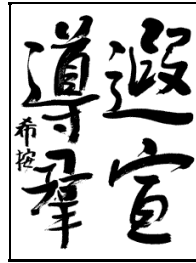 遐宣
導羣
希控